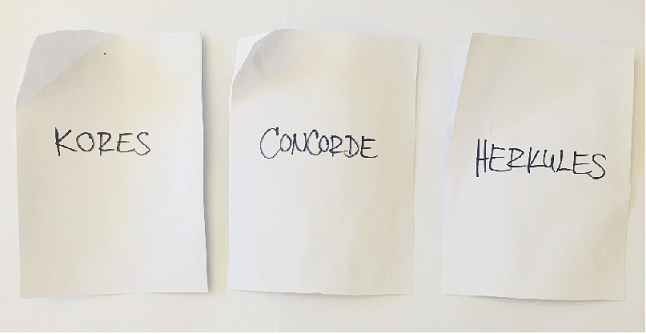 KORES
CONCORDE
HERKULES